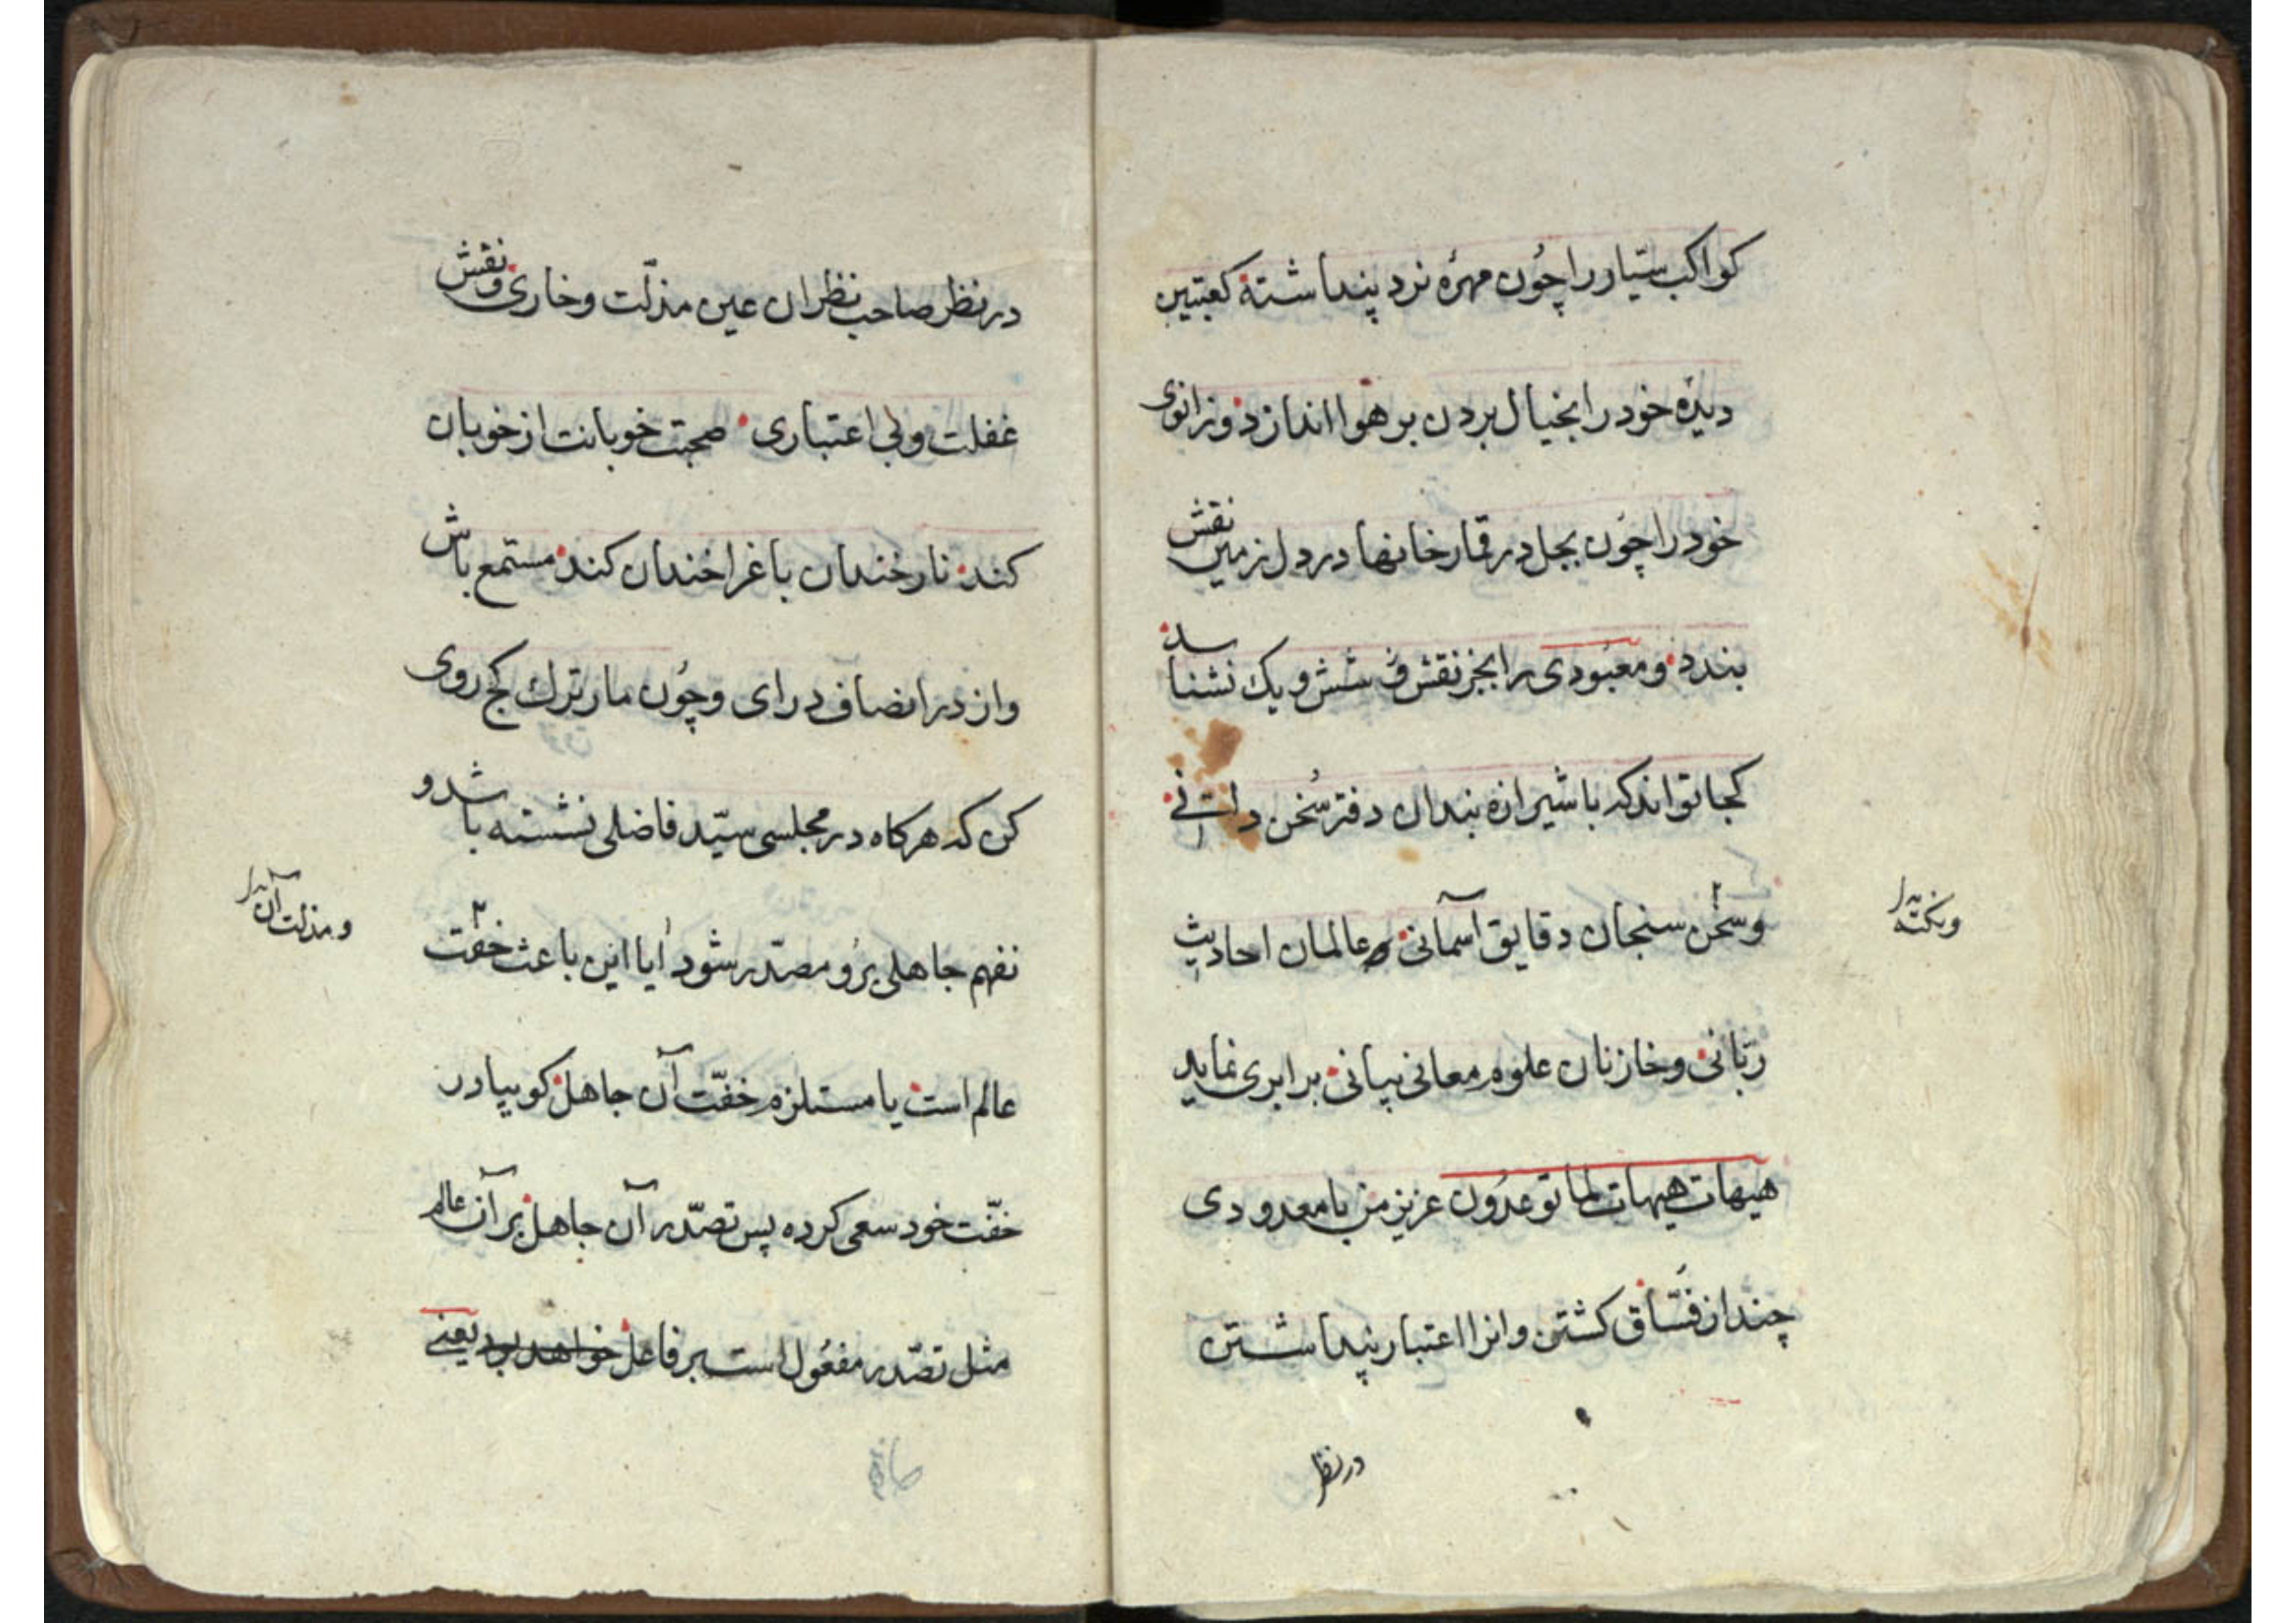 كواكب سیّار را چُون مهرهٔ نرد پنداشته كعبتین
دیدهٔ خود را بخیال بردن بر هوا اندازد و زانوی
خود را چُون بجل در قمارخانها در دل زمین نقش
بندد و معبُودی را بجز نقش شش و یك نشناسد
كجا تواند كه با شیرازه بندان دفتر سُخن دانی
وسخن سنجان دقایق آسمانی و عالمان احادیث
ونكته
ربّانی و خازنان علوم معانی بیانی برابری نماید
هیهات هیهات لما توعدُون عزیز من با معدودی
چند از فُسّاق كشتن وانرا اعتبار پنداشتن
در نظر
در نظر صاحب نظران عین مذلّت وخاری ونقش
غفلت وبی اعتباری صحبت خوبانت از خوبان
كند نار خندان باغ را خندان كند مستمع باش
واز در انصاف در ای وچُون مار ترك كج روی
كن كه هركاه در مجلسی سیّد فاضلی نشسته باشد و
نفهم جاهلی برُو مصدّر شود ایا این باعث خفّت
ومذلت آن
عالم است یا مستلزم خفّت آن جاهل كو بیا در
خفّت خود سعی كرده پس تصدّر آن جاهل بر آن عالم
مثل تصدّر مفعُول است بر فاعل خواهد بود یعنے